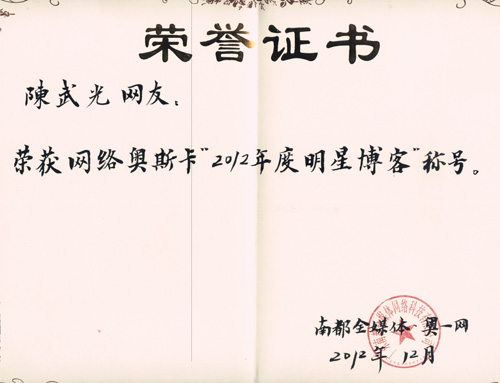 荣誉证书
陳武光网友：
荣获网络奥斯卡“2012年度明星博客”称号。
南都全媒体 奥一网
2012年12月